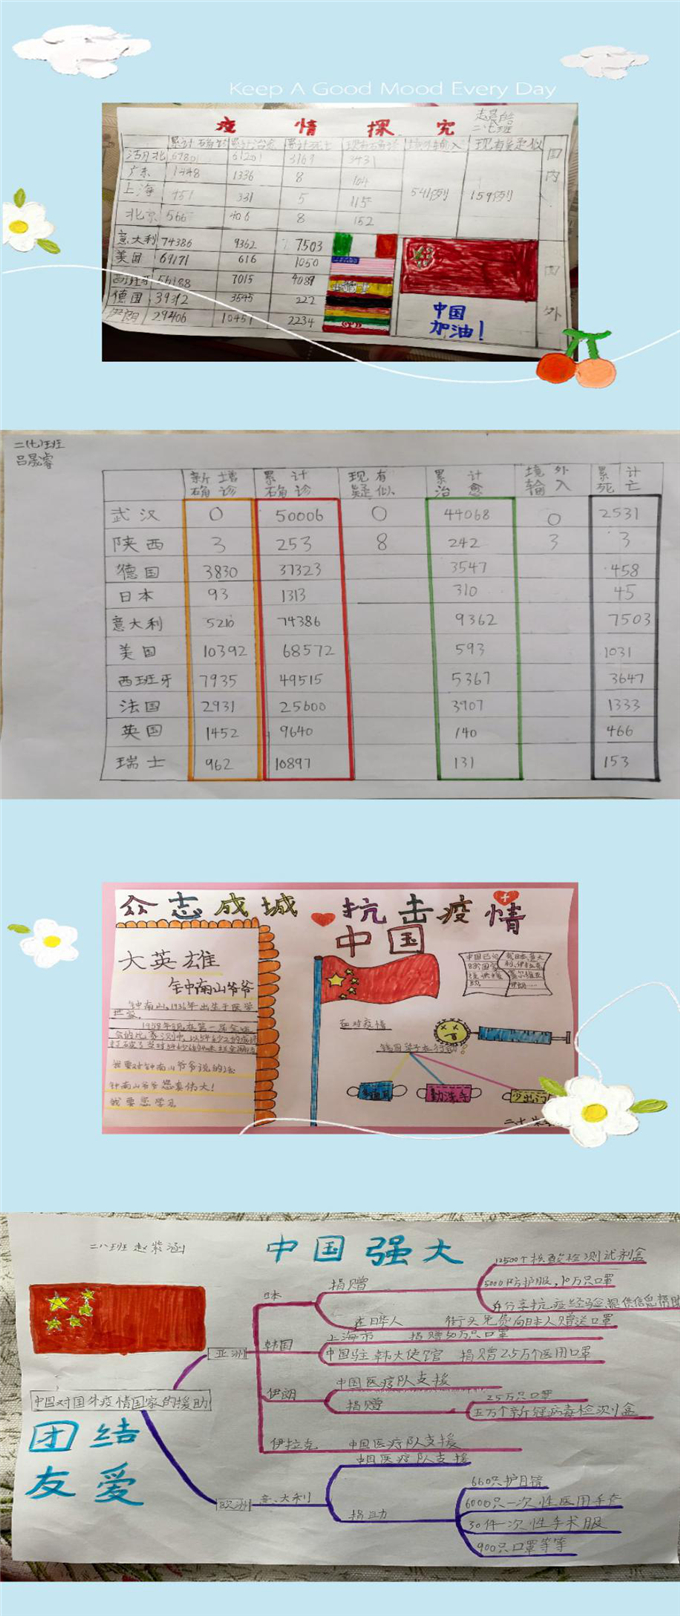 Keep A Good Mood Every Day
疫情探究
二七班
累计确诊 累计治愈 累计死亡 现有确诊 境外输入 现有疑似 国内
湖北 67801 61201 3169 3431
广东 1448 1336 8 104 541例 159例
上海 451 331 5 115
北京 566 406 8 152
意大利 74386 9362 7503 国外
美国 69171 616 1050
西班牙 56188 7015 4089
德国 39312 3545 222
伊朗 29406 10457 2234
中国
加油！
二(七)班
吕晟睿
新增确诊 累计确诊 现有疑似 累计治愈 境外输入 累计死亡
武汉 0 50006 0 44068 0 2531
陕西 3 253 8 242 3 3
德国 3830 37323 3547 458
日本 93 1313 310 45
意大利 5210 74386 9362 7503
美国 10392 68572 593 1031
西班牙 7935 49515 5367 3647
法国 2931 25600 3907 1333
英国 1452 9640 140 466
瑞士 962 10897 131 153
众志成城 抗击疫情
中国
大英雄
钟南山爷爷
钟南山,1936年出生于医学
世家。
我要对钟南山爷爷说的话
钟南山爷爷您真伟大！
我要您学习
面对疫情
勤洗手
少出门
二八班
中国强大
中国对国外疫情国家的援助
团结
友爱
亚洲
日本
捐赠
12500个核酸检测试剂盒
5000件防护服,10万只口罩
分享抗疫经验提供信息帮助
在日华人 街头免费向日本人赠送口罩
韩国
上海市 捐赠50万只口罩
中国驻韩大使馆 捐赠2.5万个医用口罩
伊朗
中国医疗队支援
捐赠
25万只口罩
五万个新冠病毒检测剂盒
伊拉克 中国医疗队支援
欧洲
意大利
中国医疗队支援
660只护目镜
6000只一次性医用手套
30件一次性手术服
900只口罩等等